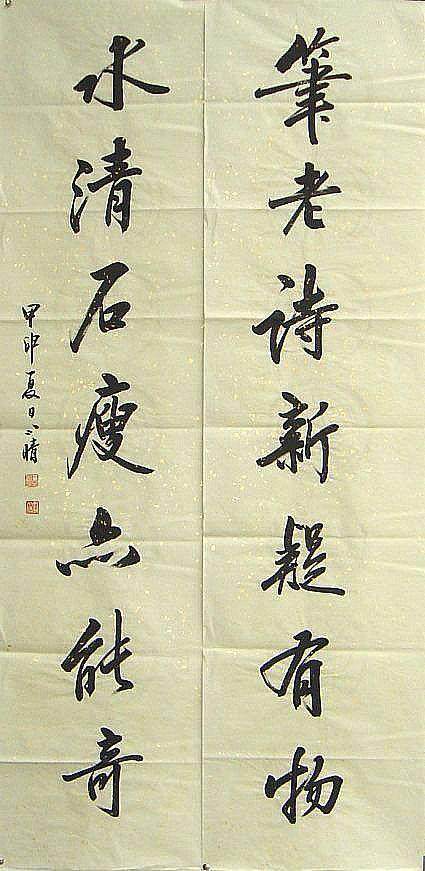 筆老詩新疑有物
水清石瘦亦能奇
甲申夏日晴